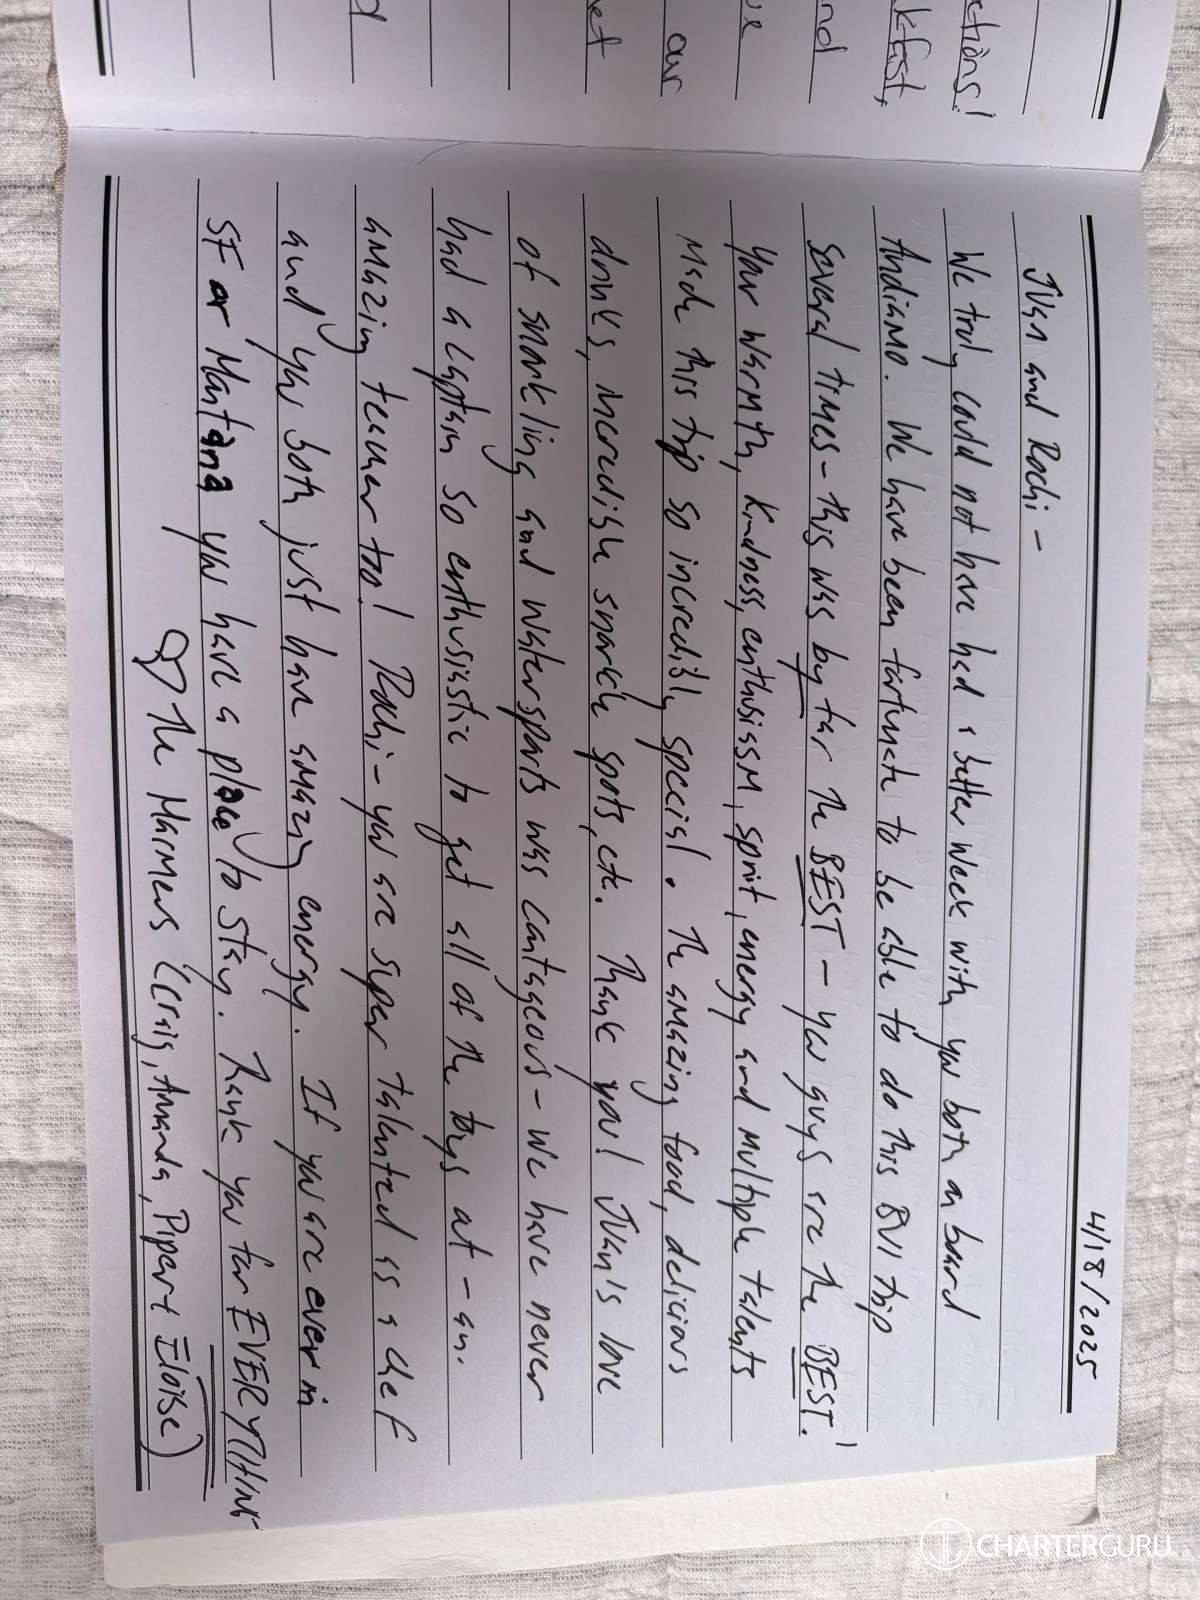 ctions!
kfast,
nd
ue
our
et
d
4/18/2025
Juan and Rochi -
We truly could not have had a better week with you both on board
Andiamo. We have been fortunate to be able to do this BVI trip
several times - this was by far the BEST - you guys are the BEST!
Your warmth, kindness, enthusiasm, spirit, energy and multiple talents
made this trip so incredibly special. The amazing food, delicious
drinks, incredible snorkel spots, etc. Thank you! Juan's love
of snorkling and watersports was contageous - we have never
had a captain so enthusiastic to get all of the toys out - an.
amazing teacher too! Rochi - you are super talented as a chef
and you both just have amazing energy. If you are ever in
SF or Montana you have a place to stay. Thank you for EVERYTHING
The (Craig, Amanda, Piper + Eloise)
CHARTERGURU